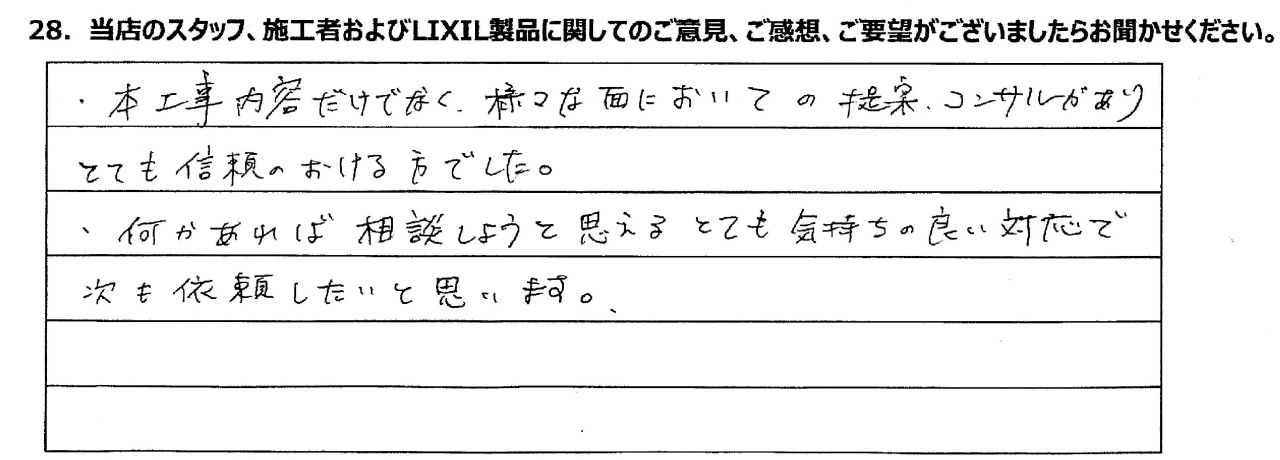 28. 当店のスタッフ、施工者およびLIXIL製品に関してのご意見、ご感想、ご要望がございましたらお聞かせください。
・本工事内容だけでなく、様々な面においての提案、コンサルがあり
とても信頼のおける方でした。
・何かあれば相談しようと思えるとても気持ちの良い対応で
次も依頼したいと思います。